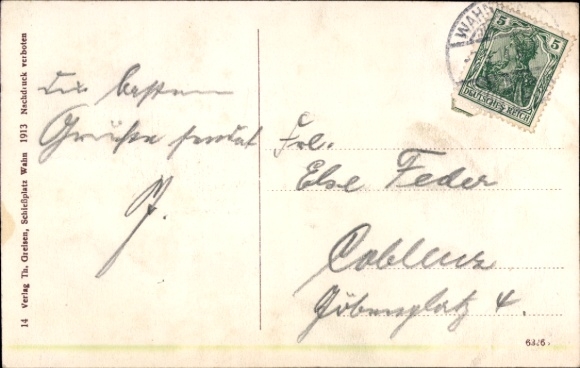 14 Verlag Th. Greisen, Schießplatz Wahn 1913 Nachdruck verboten
WAHN
5 5
DEUTSCHES REICH
Die besten
Grüße sendet
Frl.
Else Feder
Coblenz
4.